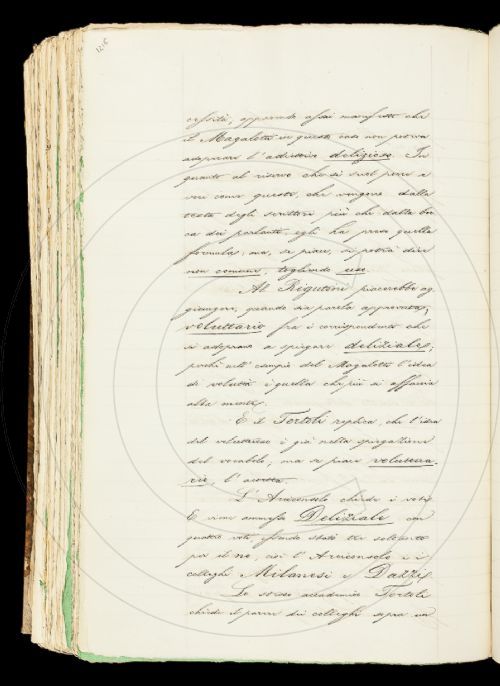 1216
cessità, apparendo assai manifesto che
il Magalotti in questo caso non poteva
adoperare l'addiettivo delizioso. In
quanto al riservo che si vuol porre a
voci come questa, che vengono dalla
testa degli scrittori più che dalla boc
ca dei parlanti, egli ha preso quella
formula, ma, se piace, si potrà dire
non comune, togliendo uso.
Al Rigutini piacerebbe ag
giungere, quando sia parola approvata,
voluttario fra i corrispondenti che
si adoprano a spiegare deliziale;
perchè nell'esempio del Magalotti l'idea
di voluttà è quella che più si affaccia
alla mente.
E il Tortoli replica, che l'idea
del voluttuoso è già nella spiegazione
del vocabolo, ma se piace voluttua
rio, l'accetta.
L'Arciconsolo chiede i voti.
E viene ammesso Deliziale con
quattro voti, essendo stati tre soltanto
pei il no, cioè l'Arciconsolo e i
colleghi Milanesi e Dazzi.
Lo stesso accademico Tortoli
chiede il parere dei colleghi sopra un